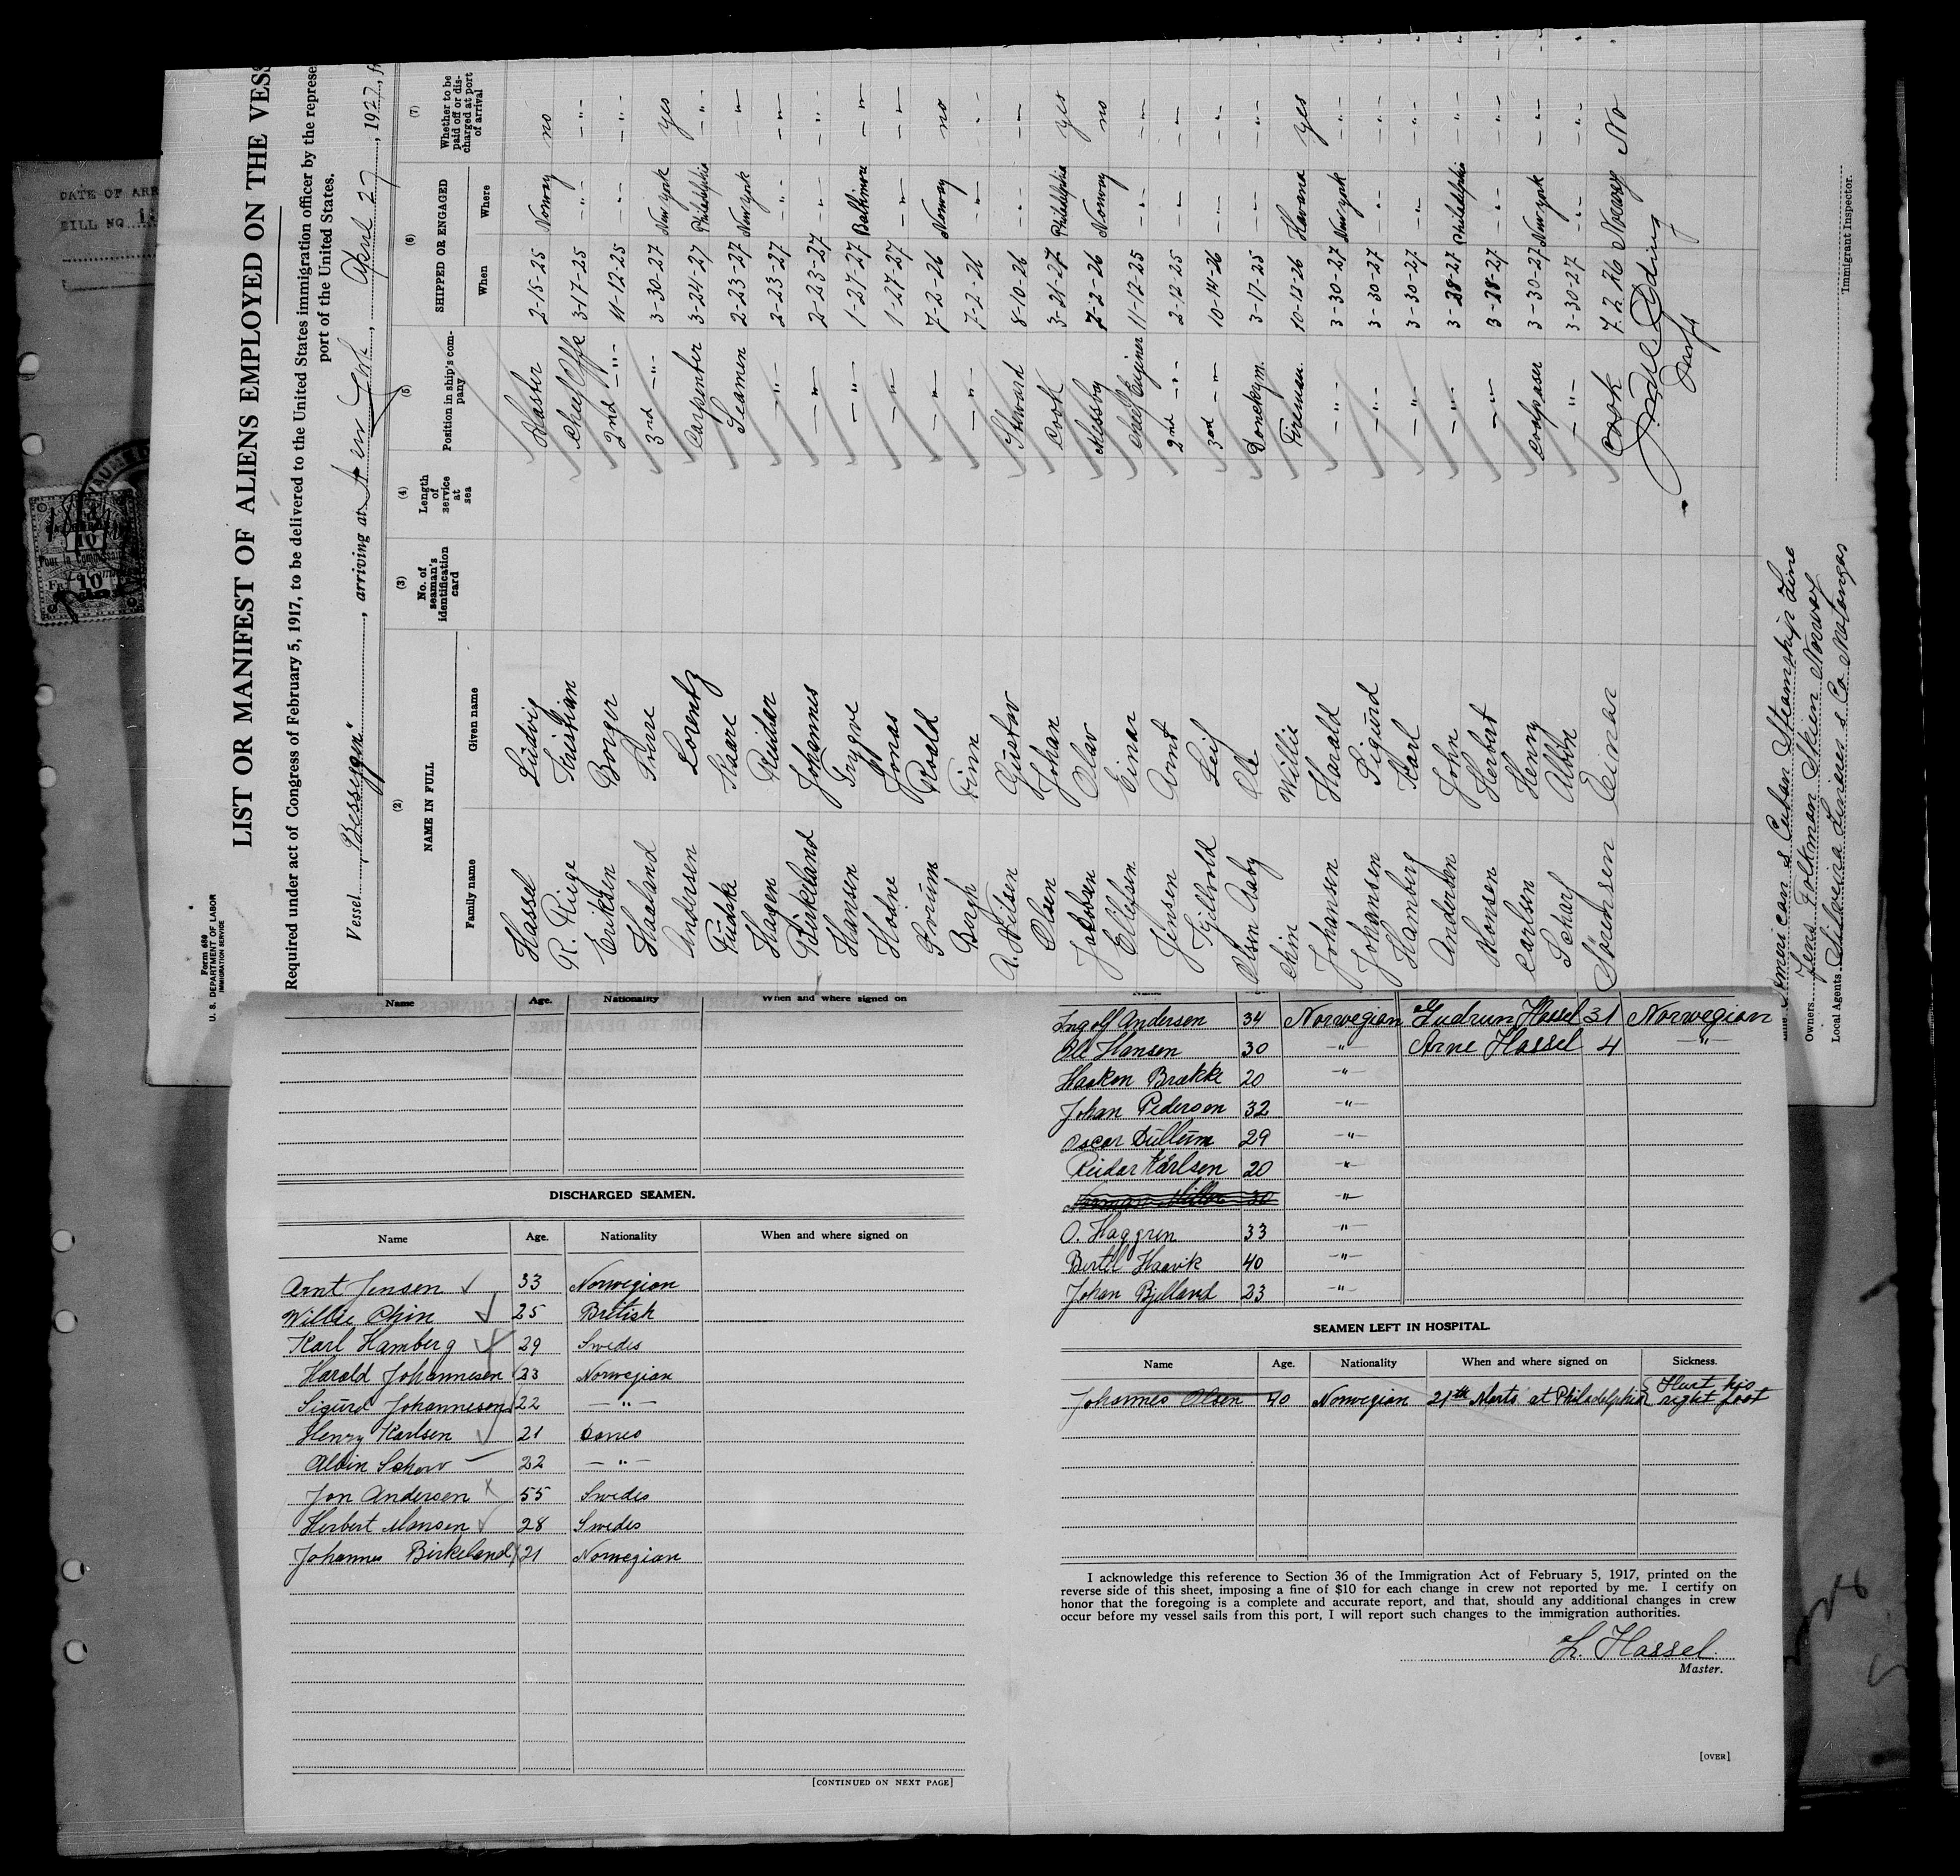 Form 680
U. S. DEPARTMENT OF LABOR
IMMIGRATION SERVICE
LIST OR MANIFEST OF ALIENS EMPLOYED ON THE VESS
Required under act of Congress of February 5, 1917, to be delivered to the United States immigration officer by the represe
port of the United States.
Vessel "Bessegen", arriving at New York, April 27, 1927, fr
(2) (3) (4) (5) (6) (7)
NAME IN FULL No. of seaman's identification card Length of service at sea Position in ship's company SHIPPED OR ENGAGED Whether to be paid off or discharged at port of arrival
Family name Given name When Where
Hassel Ludvig Master 2-15-25 Norway no
R. Riige Kristian Chief Offc 3-17-25 -"- -"-
Eriksen Borger 2nd -"- 11-12-25 -"- -"-
Haaland Tore 3rd -"- 3-30-27 New york yes
Andersen Lorentz Carpenter 3-24-27 Philadelphia -"-
Kaare Seamen 2-23-27 New york "
Hagen Reidar -"- 2-23-27 -"- -"-
Birkeland Johannes -"- 2-23-27 " -"-
Hansen Trygve -"- 1-27-27 Baltimore -"-
Hodne Jonas -"- 1-27-27 -"- -"-
Roald -"- 7-2-26 Norway no
Borgh Finn -"- 7-2-26 -"- -"-
A. Nilsen Gustav Steward 8-10-26 -"- -"-
Olsen Johan Cook 3-21-27 Philadelphia yes
Jakobsen Olav Messboy 7-2-26 Norway no
Ellefsen Einar Chief Enginer 11-12-25 -"- -"-
Jensen Arnt 2nd -"- 2-12-25 -"- -"-
Fjellvold Leif 3rd -"- 10-14-26 -"- -"-
Olsen Aaby Ole Donckeym. 3-17-25 -"- -"-
Chin Willie Fireman 10-12-26 Havana yes
Johansen Harald -"- 3-30-27 New york -"-
Johansen Sigurd -"- 3-30-27 -"- -"-
Hamberg Karl -"- 3-30-27 -"- -"-
Andersen John -"- 3-28-27 Philadelphia -"-
Monsen Herbert -"- 3-28-27 -"- -"-
Carlsen Henry Coalpaser 3-30-27 New york -"-
Scharf Albin -"- 3-30-27 -"- -"-
Sörensen Einar Cook 7.2.26 Norway No
American & Cuban Steamship Line
Owners Jens Folkman Skien Norway
Local Agents
Immigrant Inspector.
DATE OF ARR
BILL NO
10
Name Age. Nationality When and where signed on
DISCHARGED SEAMEN.
Name Age. Nationality When and where signed on
Arnt Jensen 33 Norwegian
Willie Chin 25 British
Karl Hamberg 29 Swedes
Harald Johannesen 23 Norwegian
Sigurd Johannesen 22 -"-
Henry Karlsen 21 Danes
Albin Schow 22 -"-
Jon Andersen 55 Swedes
Herbert Monsen 28 Swedes
Johannes Birkeland 21 Norwegian
[CONTINUED ON NEXT PAGE]
Ingolf Andersen 34 Norwegian Gudrun Hassel 31 Norwegian
Ole Hansen 30 -"- Arne Hassel 4 -"-
Haakon Brakke 20 -"-
Johan Pedersen 32 -"-
Oscar Dullum 29 -"-
Reidar Karlsen 20 -"-
-"-
O. Haggren 33 -"-
Bertel Haavik 40 -"-
Johan Bjelland 23 -"-
SEAMEN LEFT IN HOSPITAL.
Name Age. Nationality When and where signed on Sickness.
Johannes Olsen 40 Norwegian 21th Marts at Philadelphia Hurt his right foot
I acknowledge this reference to Section 36 of the Immigration Act of February 5, 1917, printed on the
reverse side of this sheet, imposing a fine of $10 for each change in crew not reported by me. I certify on
honor that the foregoing is a complete and accurate report, and that, should any additional changes in crew
occur before my vessel sails from this port, I will report such changes to the immigration authorities.
L. Hassel
Master.
[OVER]